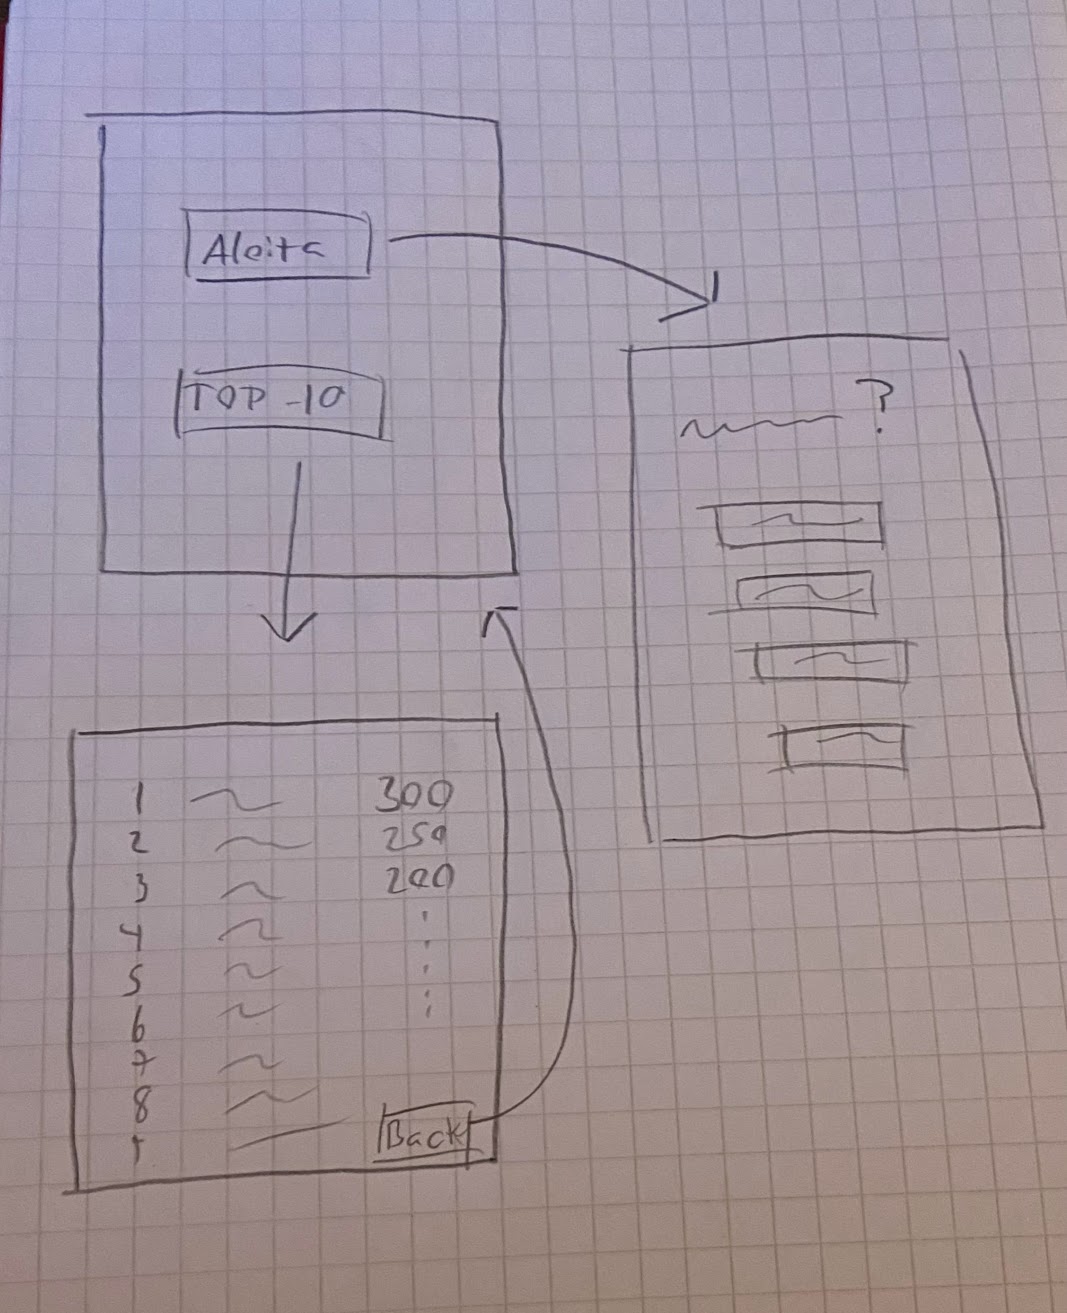 Aloita
TOP-10
?
1 300
2 250
3 200
4
5
6
7
8
Back